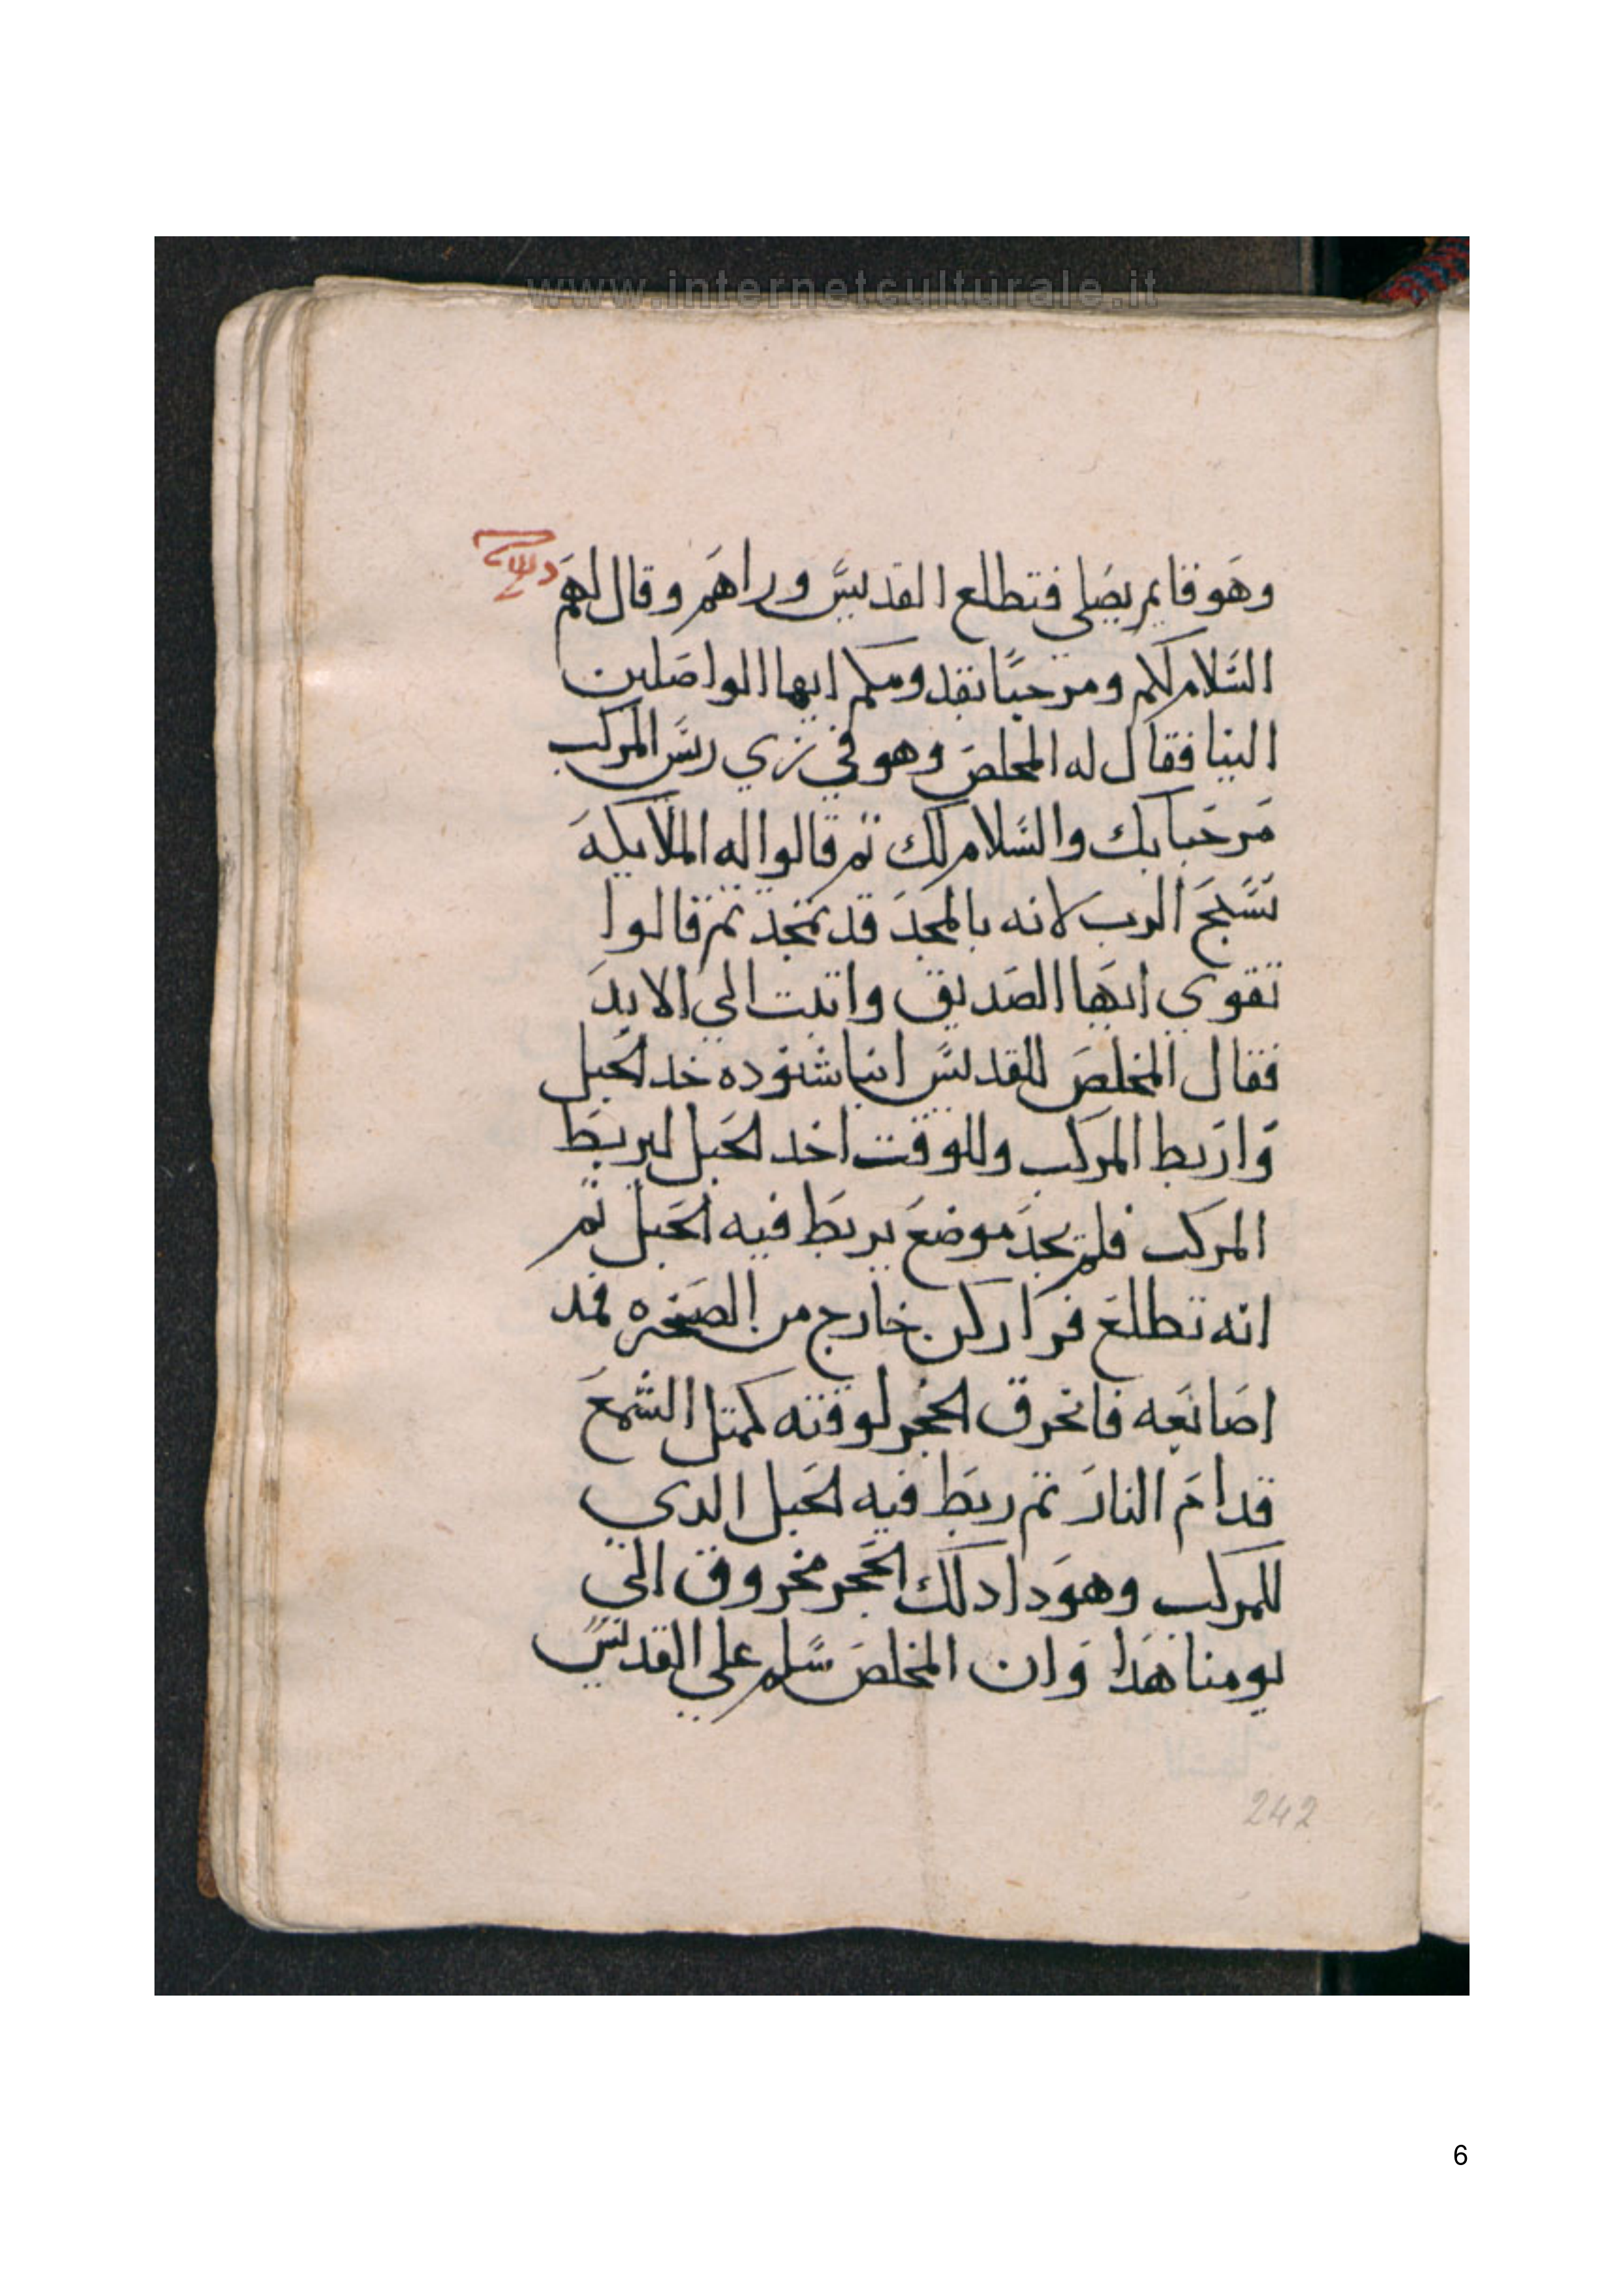 www.internetculturale.it
وهو قايم يصلي فتطلع القديس وراهم وقال لهم
السلام لكم ومرحبا بقدومكم ايها الواصلين
الينا فقال له المخلص وهو في زي ريس المركب
مرحبا بك والسلام لك تم قالوا له الملايكه
نسبح الرب لانه بالمجد قد تمجد تم قالوا
تقوي ايها الصديق واتبت الي الابد
فقال المخلص للقديس انبا شنوده خد الحبل
واربط المركب وللوقت اخد الحبل ليربط
المركب فلم يجد موضع يربط فيه الحبل تم
انه تطلع فرا ركن خارج من الصخره فمد
اصابعه فانخرق الحجر لوقته كمتل الشمع
قدام النار تم ربط فيه الحبل الدي
للمركب وهودا دلك الحجر مخروق الي
يومنا هدا وان المخلص سلم علي القديس
242
6